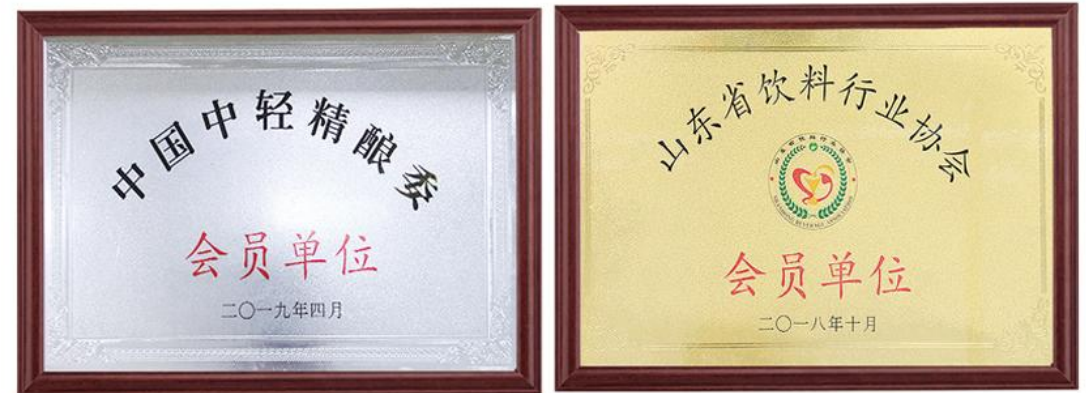 中国中轻精酿委
会员单位
二〇一九年四月
山东省饮料行业协会
山东省饮料行业协会
SHANDONG BEVERAGE ASSOCIATION
会员单位
二〇一八年十月